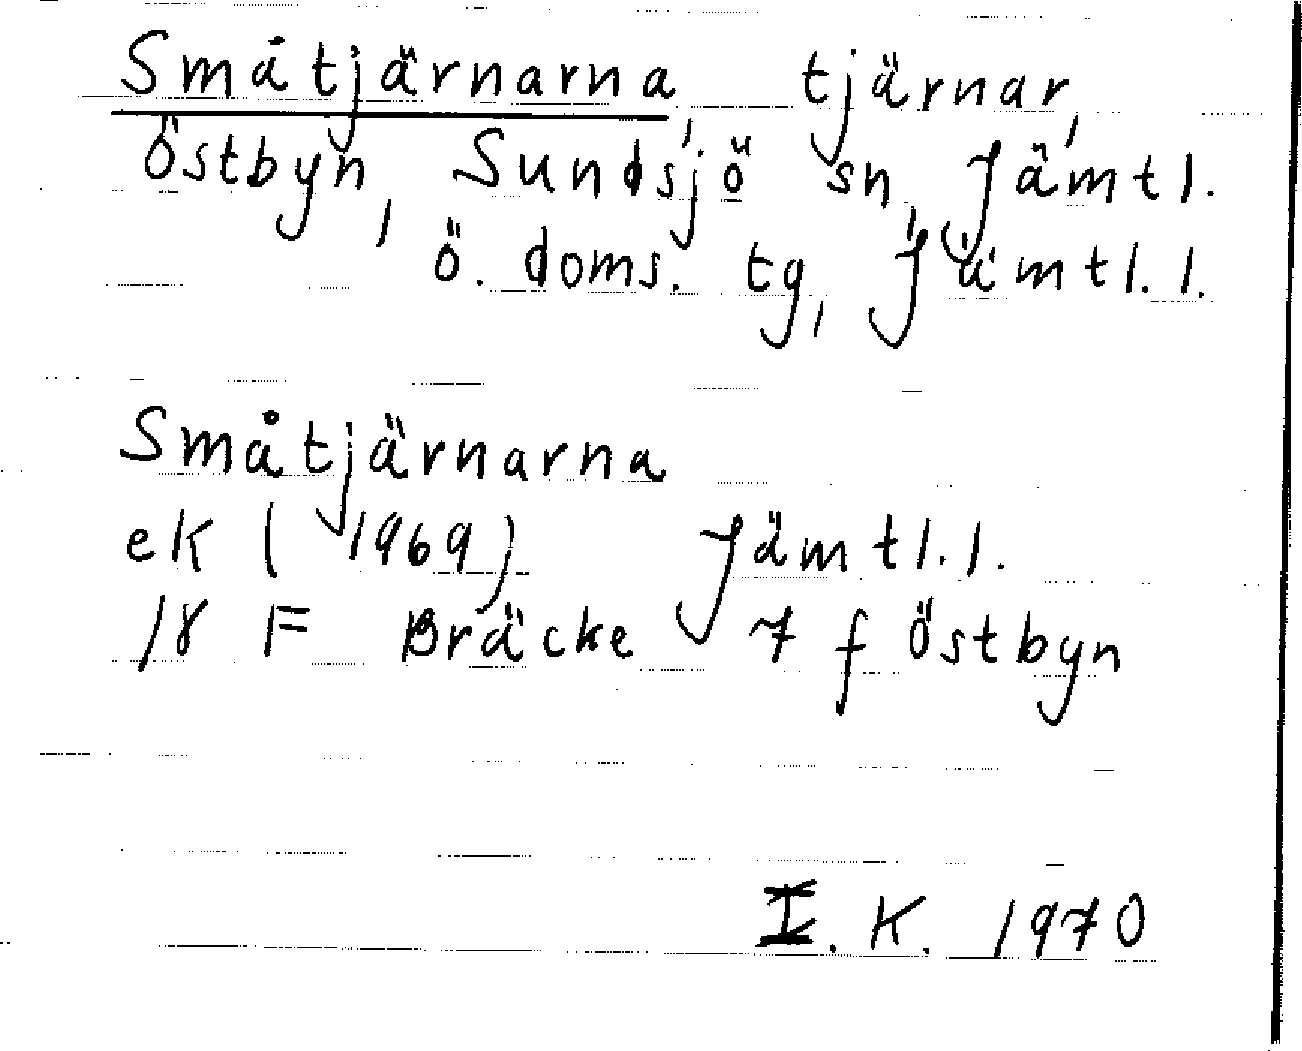 Småtjärnarna, tjärnar,
Östbyn, Sundsjö sn, Jämtl.
ö. doms. tg, Jämtl. l.
Småtjärnarna
ek (1969) Jämtl. l.
18 F Bräcke 7 f Östbyn
I. K. 1970